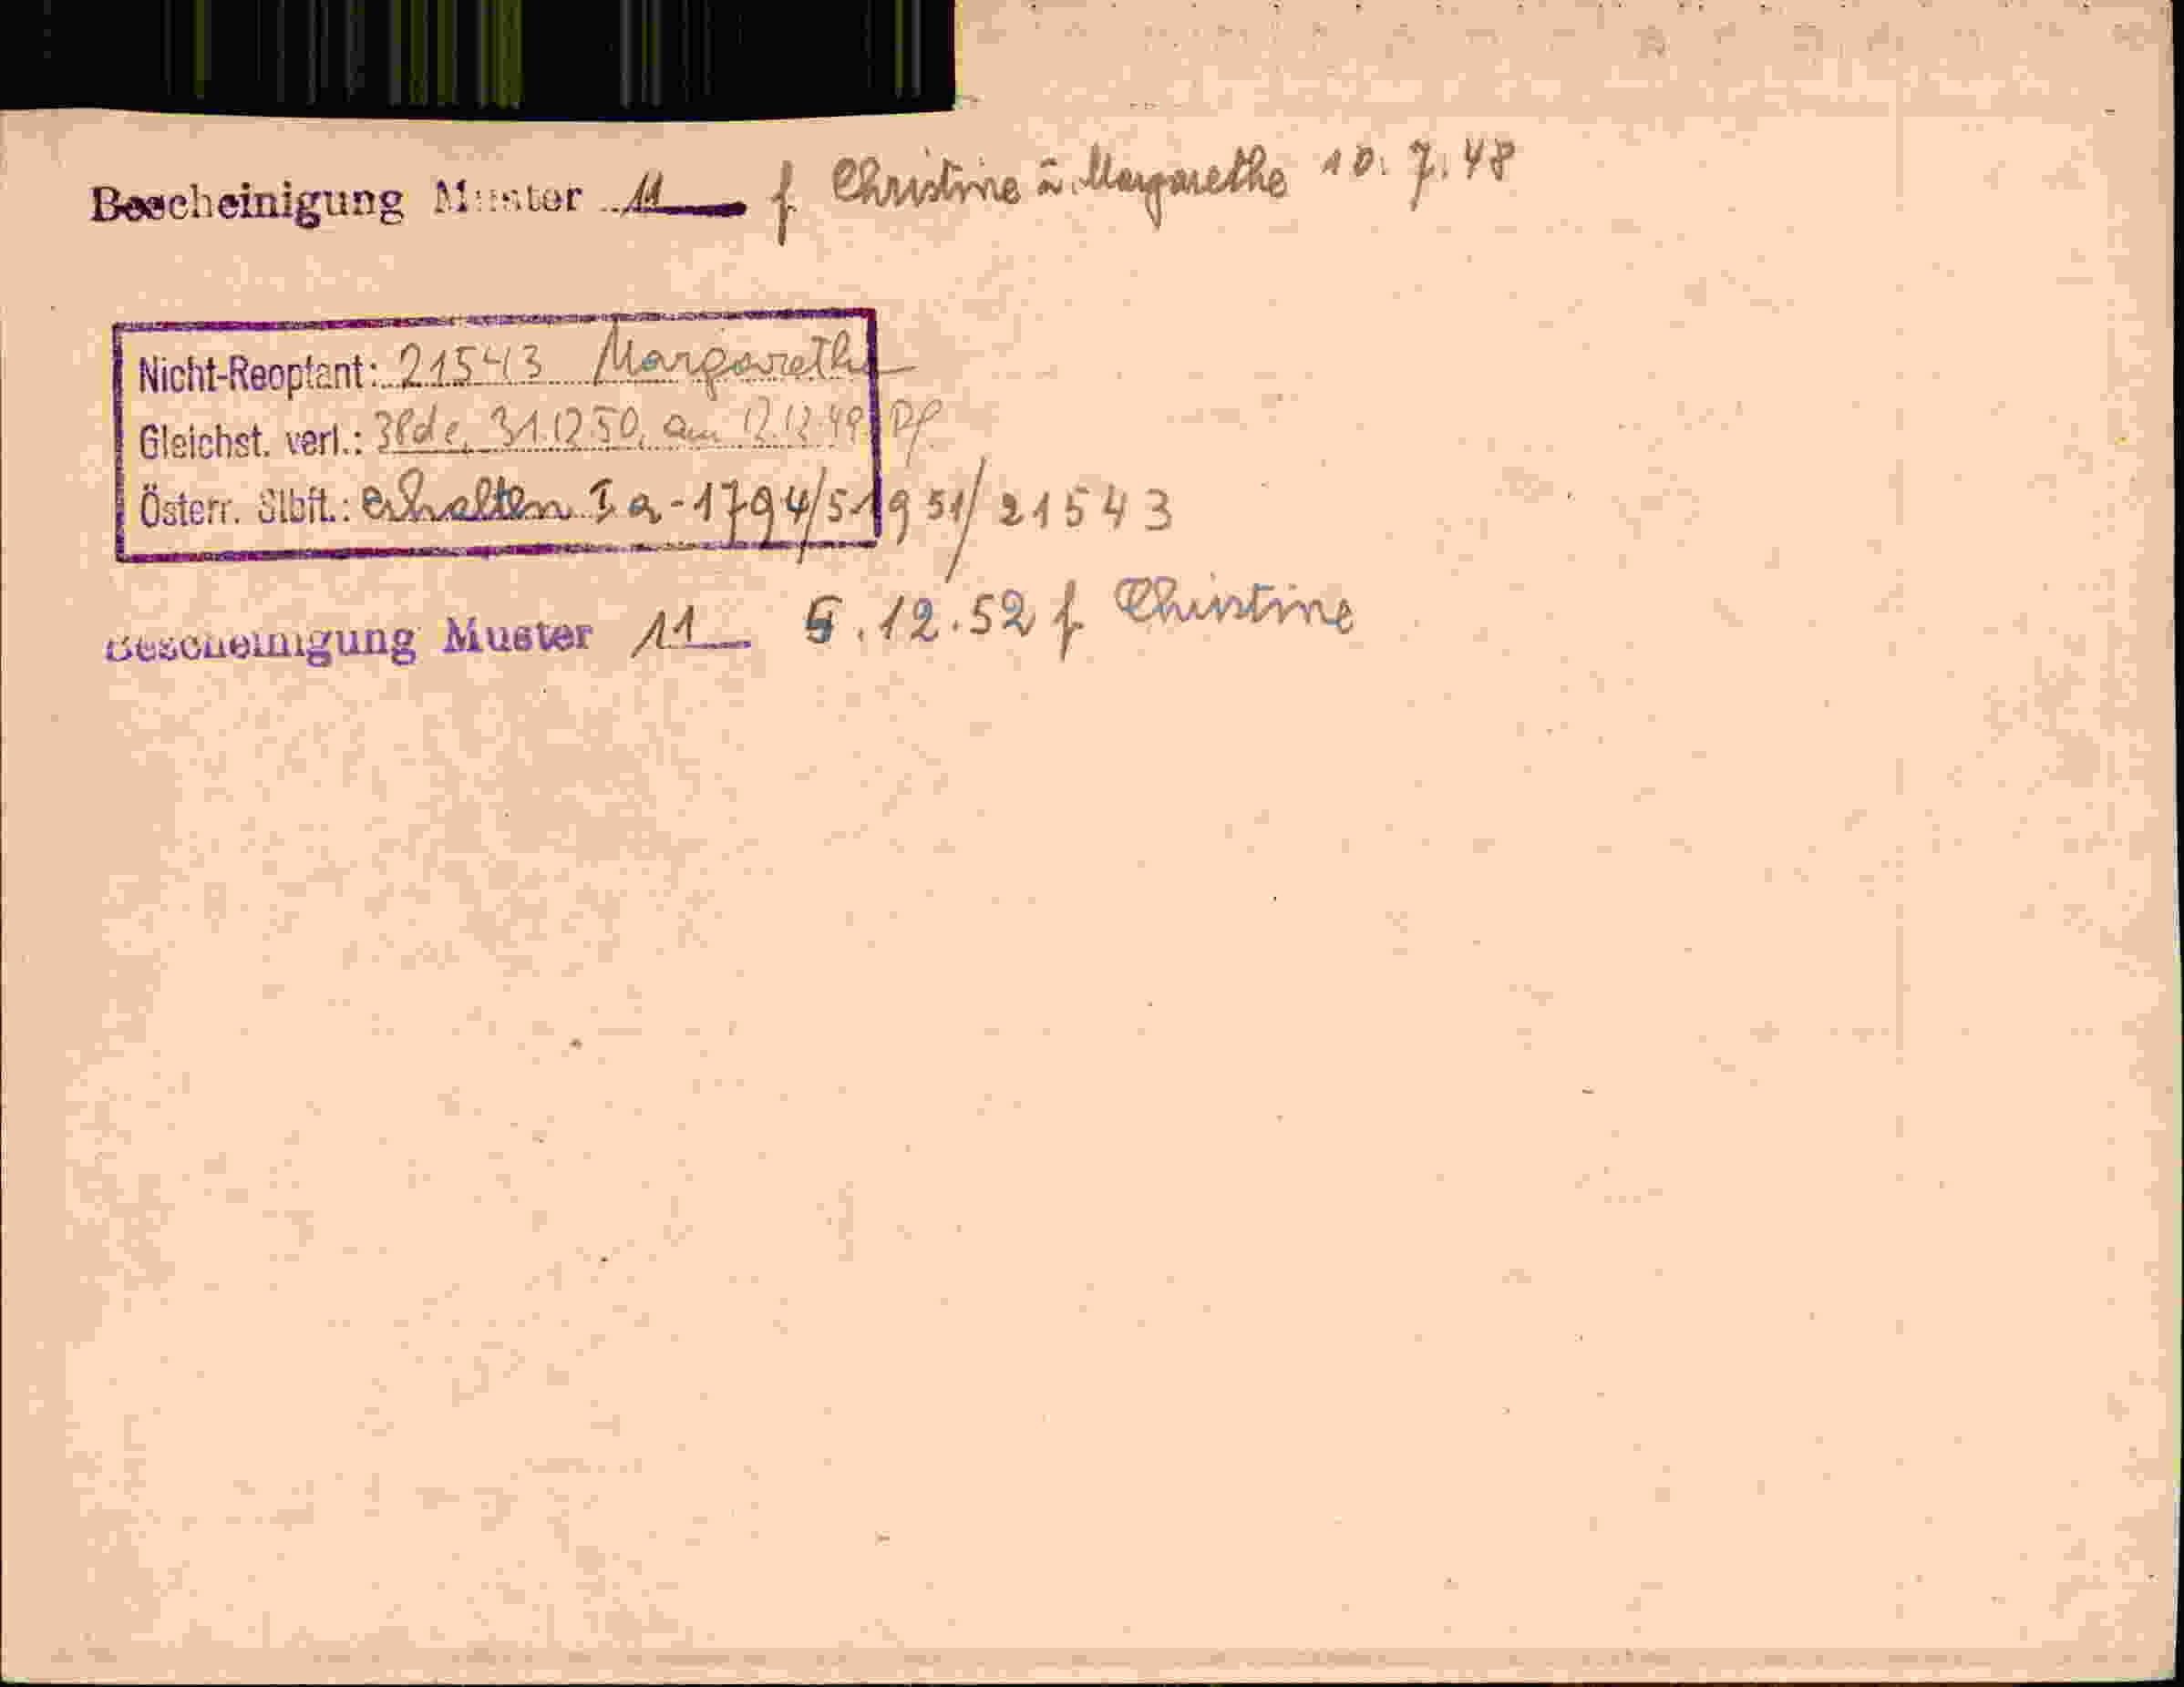 Bescheinigung Muster 11 f Christine u. Margarethe 10.7.48
Nicht-Reoptant: 21543 Margarethe
Gleichst. verl.: 31.12.50, am 12.12.49
Österr. Stbft.: erhalten I a-1794/51951/21543
Bescheinigung Muster 11 5.12.52 f Christine